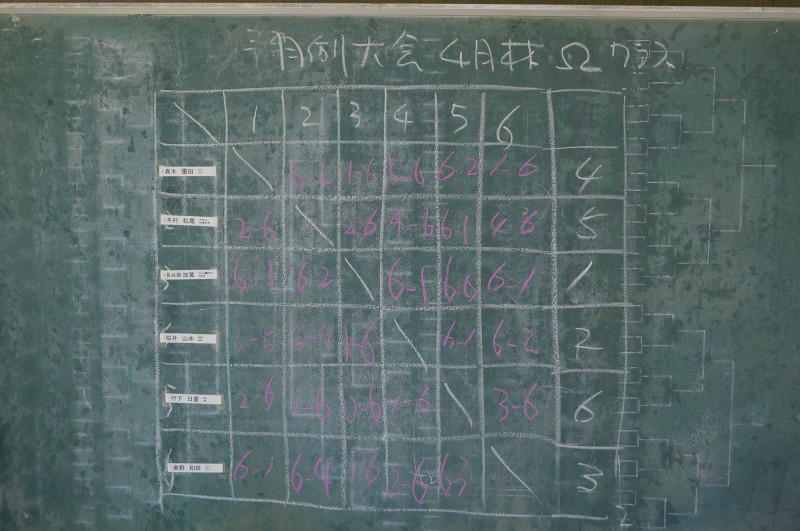 月例大会 4月杯 Ωクラス
1 2 3 4 5 6
高木 園田 1-6 5-6 6-2 1-6 4
木村 松尾 2-6 2-6 4-6 6-1 4-6 5
長谷部 加賀 6-1 6-2 6-1 6-0 6-1 1
桜井 山本 6-5 6-4 1-6 6-1 6-2 2
竹下 日置 2-6 1-6 0-6 1-6 3-6 6
奥野 和田 6-1 6-4 1-6 2-6 6-3 3